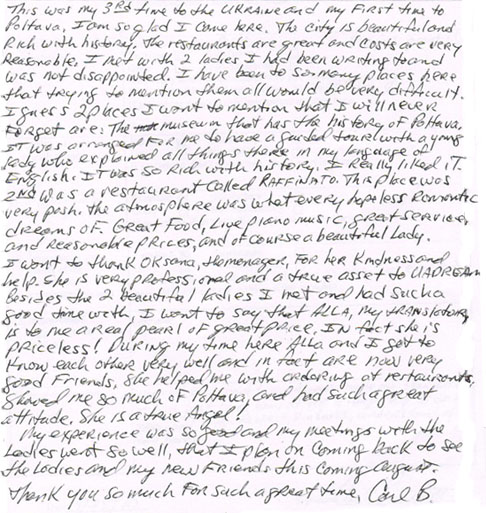 This was my 3rd time to the Ukraine and my first time to
Poltava, I am so glad I come here. The city is beautiful and
Rich with history. The restaurants are great and costs are very
Reasonable. I met with 2 ladies I had been writing to and
was not disappointed. I have been to so many places here
that trying to mention them all would be very difficult.
I guess 2 places I want to mention that I will never
Forget are: The museum that has the history of Poltava.
IT was arranged For me to have a guided tour with a young
lady who explained all things there in my language of
English. IT was so Rich with history. I Really liked IT.
2nd was a restaurant Called RAFFINATO. This place was
very posh. the atmosphere was what every hopeless Romantic
dreams of. Great Food, Live piano music, great service,
and Reasonable prices, and of course a beautiful Lady.
I want to thank Oksana, the manager, For her Kindness and
help. She is very professional and a true asset to UADREAM
Besides the 2 beautiful ladies I met and had such a
good time with, I want to say that ALLA, my translator,
is to me a real pearl of great price. IN fact she is
priceless! During my time here Alla and I got to
Know each other very well and in fact are now very
good Friends. She helped me with ordering at restaurants,
Showed me so much of Poltava, and had such a great
attitude. She is a true Angel!
My experience was so good and my meetings with the
Ladies went so well, that I plan on Coming back to see
the Ladies and my new Friends this coming August.
Thank you so much For such a great time, Carl B.